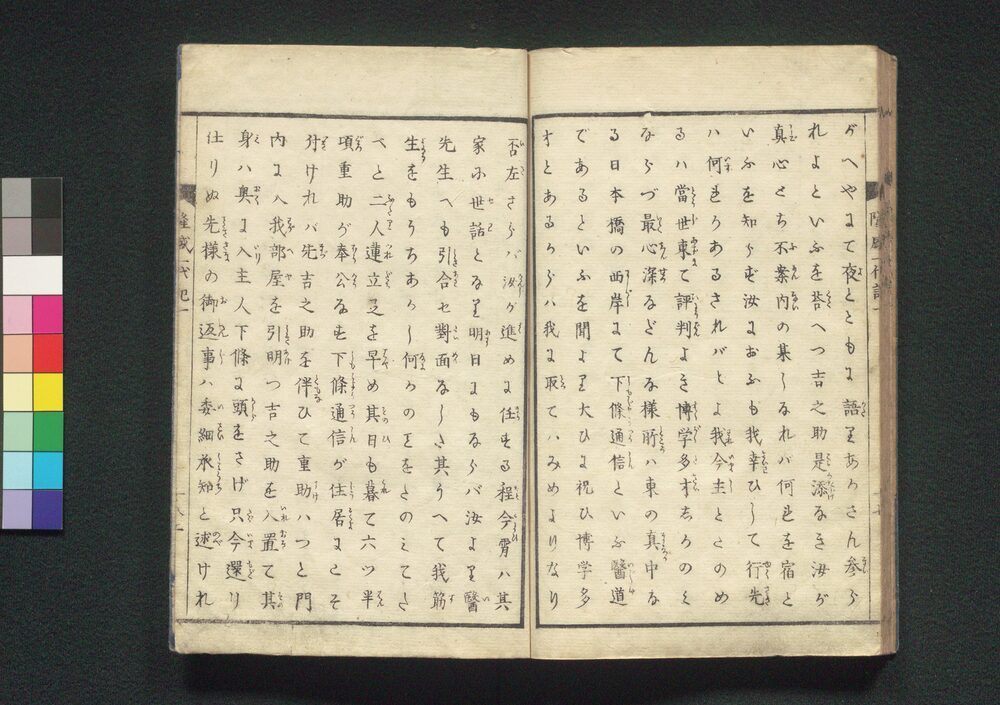 がへやまて夜とともま語りあかさん参ら
れよといふを答へつ吉之助是添なき汝が
真心とち不案内の某しなれバ何れを宿と
いふを知らず汝まおふも我幸ひして行先
ハ何れかあるされバとよ我今主とたのめ
るハ當世東て評判よき博学多才ちかのミ
ならづ最心深などんな様所ハ東の真中な
る日本橋の西岸まて下條通信といふ醫道
であるといふを聞より大ひよ祝ひ博学多
才とあるからハ我ま取てハみめよりなり
否左さらバ汝が進めま任せる程今霄ハ其
家小世話となり明日まもならバ汝より醫
先生へも引合セ對面なした其うへて我筋
生をもうちあかし何かの＿をたのミてた
べと二人連立足を早め其日も暮て六ツ半
頃重助が奉公なせ下條通信が住居まこそ
付けれバ先吉之助を伴ひて重助ハつと門
内ま入我部屋を引明つ吉之助を入置て其
身ハ奥ま入主人下條ま頭をさげ只今還り
仕りぬ先様の御返事ハ委細承知と述けれ
隆盛一代記一